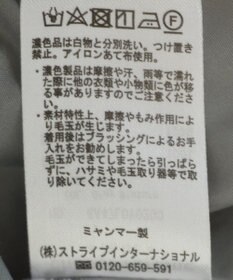 濃色品は白物と分別洗い。つけ置き
禁止。アイロンあて布使用。
・濃色製品は摩擦や汗、雨等で濡れ
た際に他の衣類や小物類に色が移
る事がありますのでご注意くださ
い。
・素材特性上、摩擦やもみ作用によ
り毛玉が生じます。
着用後はブラッシングによるお手
入れをお勧めします。
毛玉ができてしまったら引っぱら
ずに、ハサミや毛玉取り器等で取
り除いてください。
ミャンマー製
(株)ストライプインターナショナル
☎ 0120-659-591